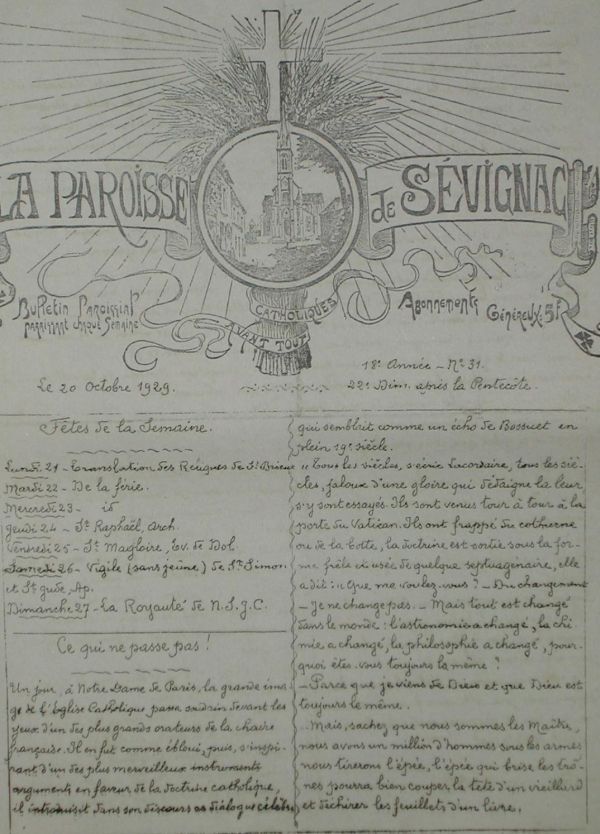 LA PAROISSE de SÉVIGNAC
Bulletin Paroissial
paraissant chaque Semaine
CATHOLIQUES
AVANT TOUT
Abonnements
Généreux: 5f
18e Année - No 31.
Le 20 Octobre 1929.
22e Dim. après la Pentecôte.
Fêtes de la Semaine.
Lundi 21 - Translation des Reliques de St Brieuc
Mardi 22 - De la férie.
Mercredi 23 - id
Jeudi 24 - St Raphaël, Arch.
Vendredi 25 - St Magloire, Ev. de Dol.
Samedi 26 - Vigile (sans jeûne) de St Simon
et St Jude, Ap.
Dimanche 27 - La Royauté de N.S.J.C.
Ce qui ne passe pas!
Un jour, à Notre Dame de Paris, la grande ima-
ge de l'Eglise Catholique passa soudain devant les
yeux d'un des plus grands orateurs de la chaire
française. Il en fut comme ébloui, puis, s'inspi-
rant d'un des plus merveilleux instruments
arguments en faveur de la doctrine catholique,
il introduisit dans son discours ce dialogue célèbre
qui semblait comme un écho de Bossuet en
plein 19e siècle.
"Tous les siècles, s'écrie Lacordaire, tous les siè-
cles, jaloux d'une gloire qui dédaigne la leur
s'y sont essayés. Ils sont venus tour à tour à la
porte du Vatican. Ils ont frappé du cothurne
ou de la botte, la doctrine est sortie sous la for-
me frêle et usée de quelque septuagénaire, elle
a dit: "Que me voulez-vous? - Du changement
- Je ne change pas. - Mais tout est changé
dans le monde: l'astronomie a changé, la chi-
mie a changé, la philosophie a changé, pour-
quoi êtes-vous toujours la même?
- Parce que je viens de Dieu et que Dieu est
toujours le même.
.. Mais, sachez que nous sommes les Maîtres,
nous avons un million d'hommes sous les armes
nous tirerons l'épée, l'épée qui brise les trô-
nes pourra bien couper la tête d'un vieillard
et déchirer les feuillets d'un livre.